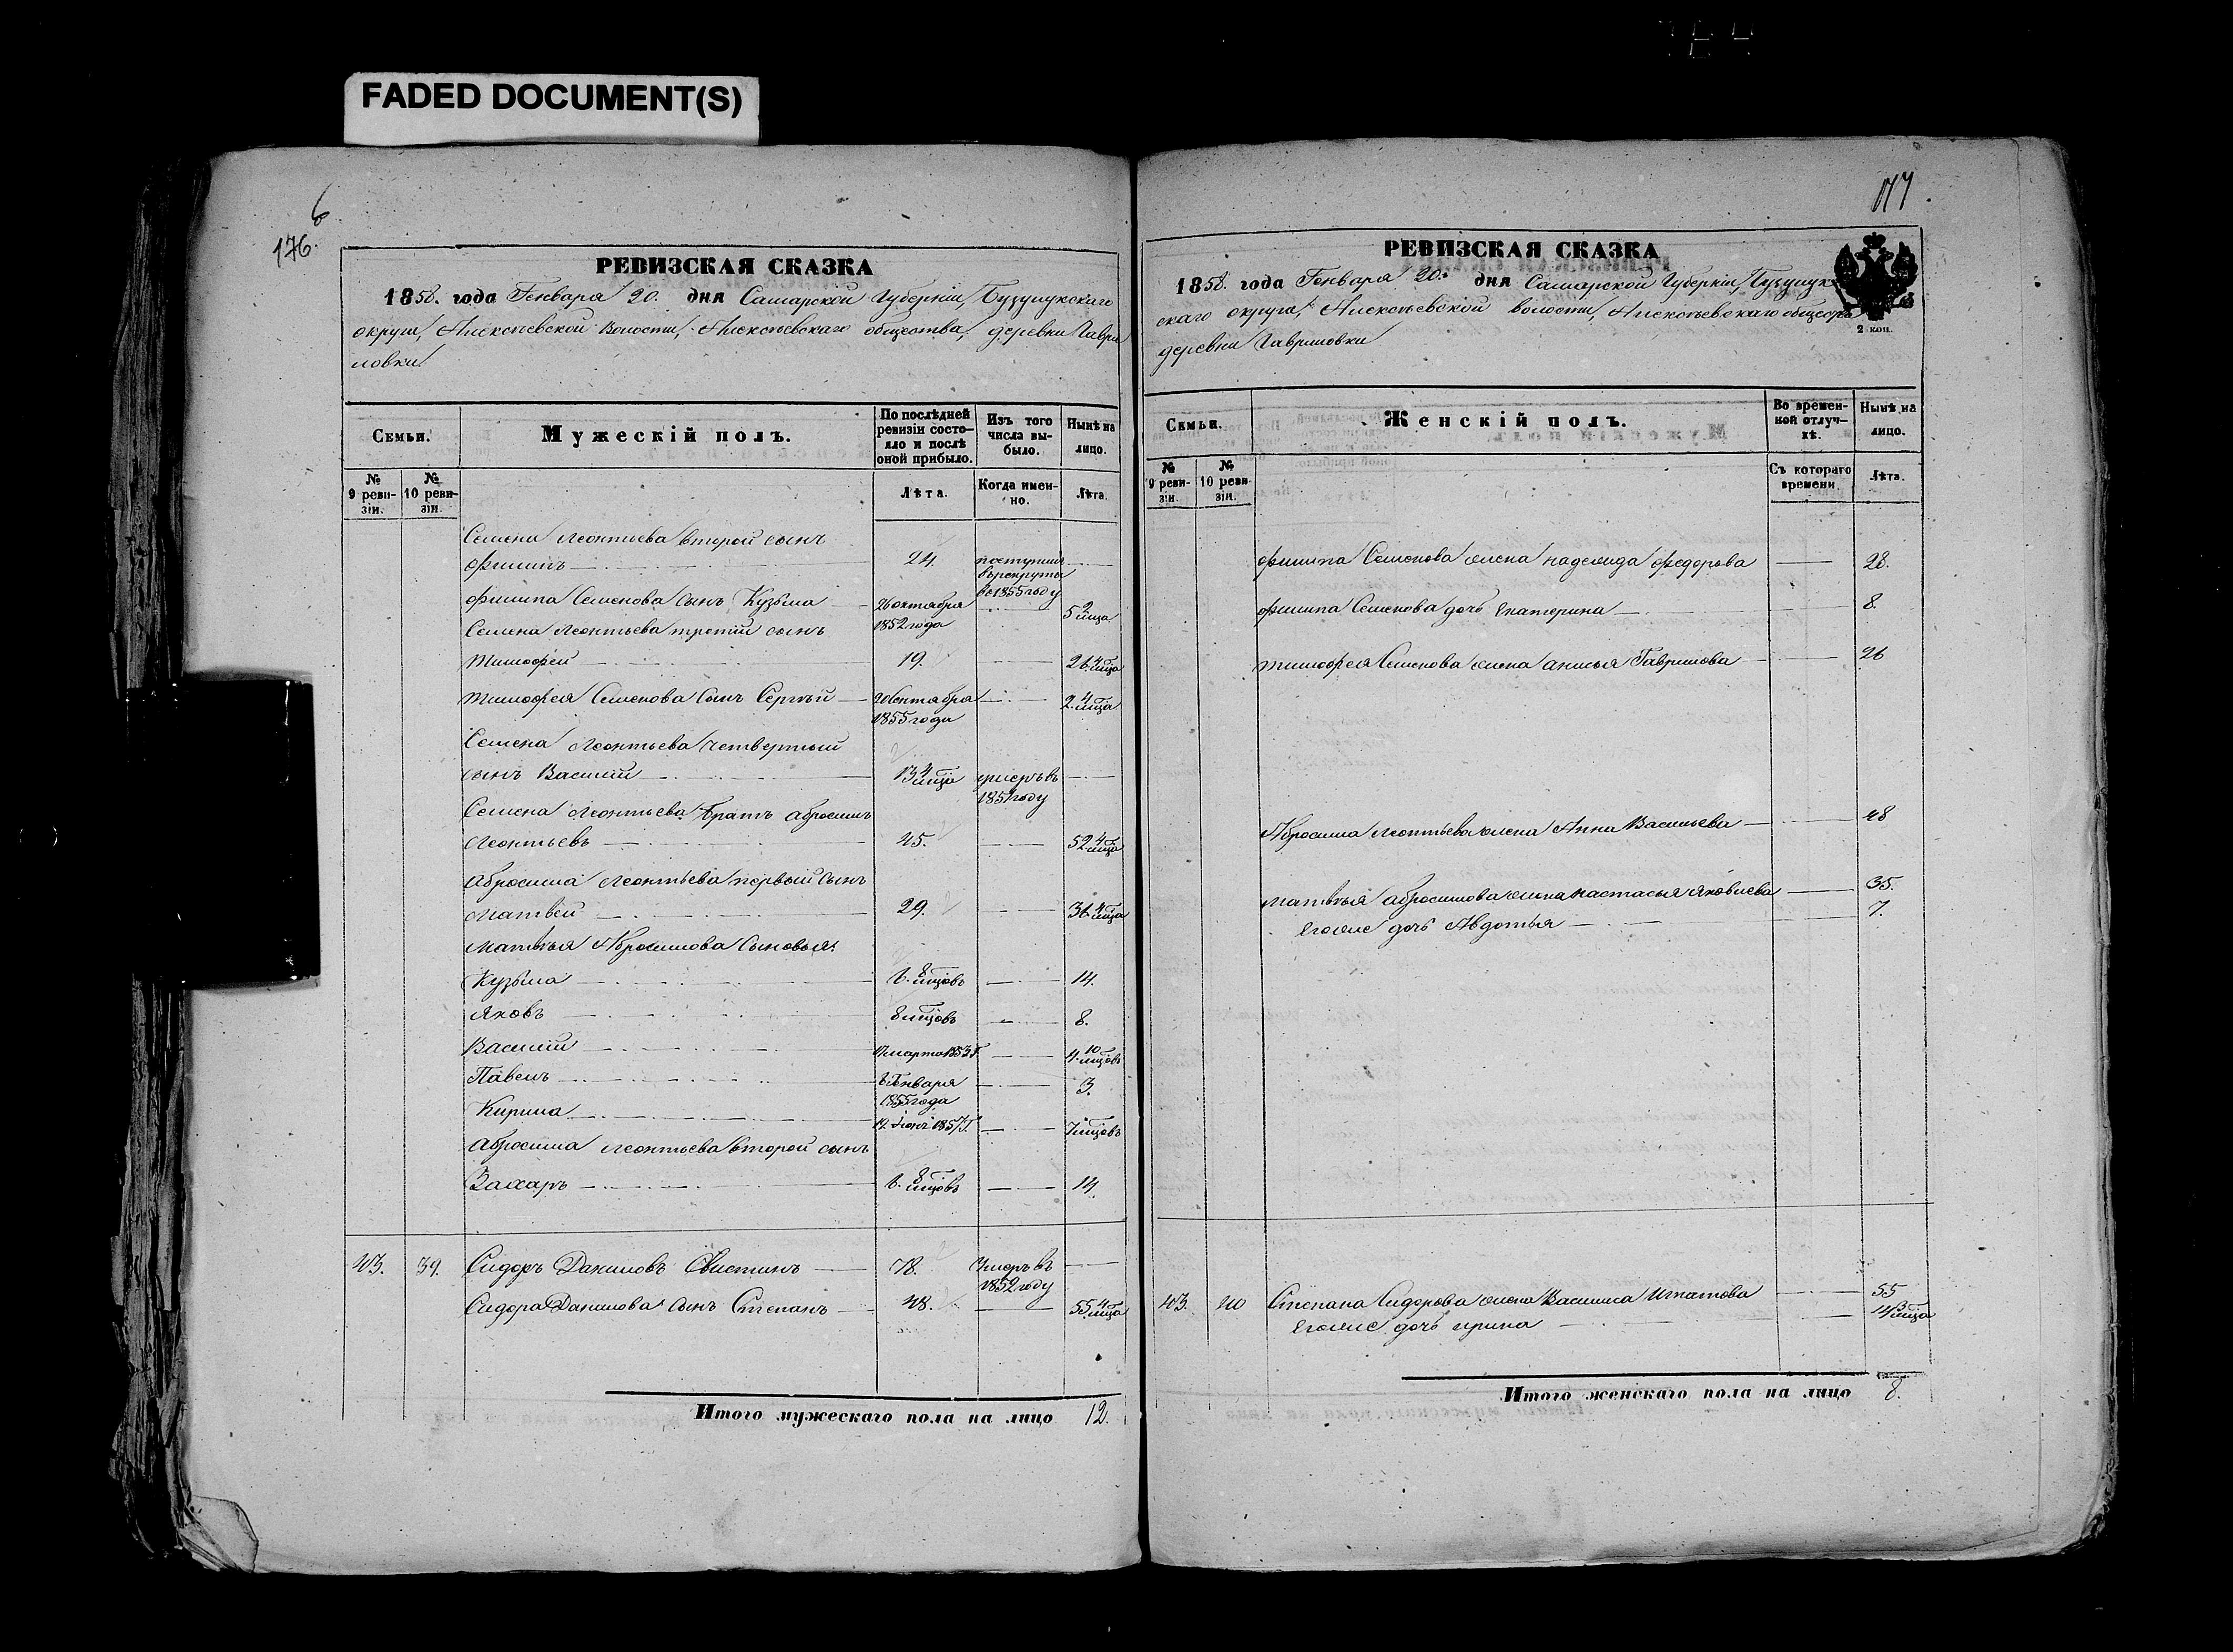 FADED DOCUMENT(S)
6
176.
РЕВИЗСКАЯ СКАЗКА
1858. года Генваря 20. дня Самарской Губерніи, Бузулукскаго
округа, Алексѣевской Волости, Алексѣевскаго общества, деревни Гаври
ловки
Семьи.
Мужескій полъ.
По послѣдней ревизіи состояло и послѣ оной прибыло.
Изъ того числа выбыло.
Нынѣ на лицо.
№ 9 ревизіи.
№ 10 ревизіи.
Лѣта.
Когда именно.
Лѣта.
Семена Леонтьева второй сынъ
Филипъ 24. поступилъ
въ рекруты
въ 1855 году
Филипа Семенова Сынъ Кузьма 26 октября
1852 года 5 2 мца
Семена Леонтьева третій сынъ
Тимофей 19. 26. 4 мца
Тимофея Семенова Сынъ Сергѣй Сентября
1855 года 2. 4 мца
Семена Леонтьева четвертый
сынъ Василий 13 4 мца умеръ въ
1851 году
Семена Леонтьева братъ Абросимъ
Леонтьевъ 45. 52. 4 мца
Абросима Леонтьева первый сынъ
Матвей 29. 36. 4 мца
Матвѣя Абросимова Сыновья:
Кузьма 6. 8 мцовъ 14.
Яковъ 8 мцовъ 8.
Василий марта 1853 г. 4. 10 мцовъ
Павелъ Генваря
1855 года 3.
Кирила 1857 г. 7 мцовъ
Абросима Леонтьева второй сынъ
Захаръ 6. 8 мцовъ 14.
43. 39. Сидоръ Даниловъ Свистинъ 78. Умеръ въ
1852 году
Сидора Данилова сынъ Степанъ 48. 55. 4 мца
Итого мужескаго пола на лицо 12.
177
РЕВИЗСКАЯ СКАЗКА
1858. года Генваря 20. дня Самарской Губерніи, Бузулук
скаго округа, Алексѣевской волости, Алексѣевскаго общества
деревни Гавриловки
2 коп.
Семьи.
Женскій полъ.
Во временной отлучкѣ.
Нынѣ на лицо.
№ 9 ревизіи.
№ 10 ревизіи.
Съ котораго времени.
Лѣта.
Филипа Семенова жена Надежда Федорова 28.
Филипа Семенова дочь Екатерина 8.
Тимофея Семенова жена Анисья Гаврилова 26
Абросима Леонтьева жена Анна Васильева 48
Матвѣя Абросимова жена Настасья Яковлева 35.
Егоже дочь Авдотья 7.
43. 40 Степана Сидорова жена Василиса Игнатова 55
Егоже дочь Ирина 14 3 мца
Итого женскаго пола на лицо 8.